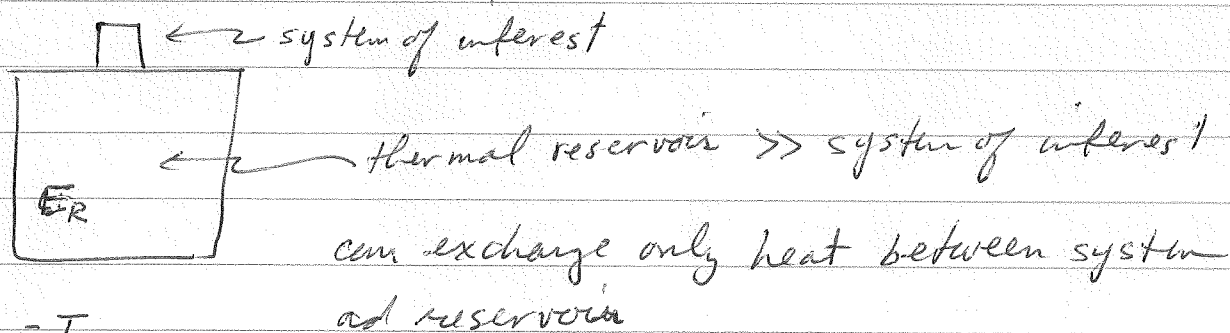 system of interest
thermal reservoir >> system of interest
E_R
can exchange only heat between system
ad reservoir